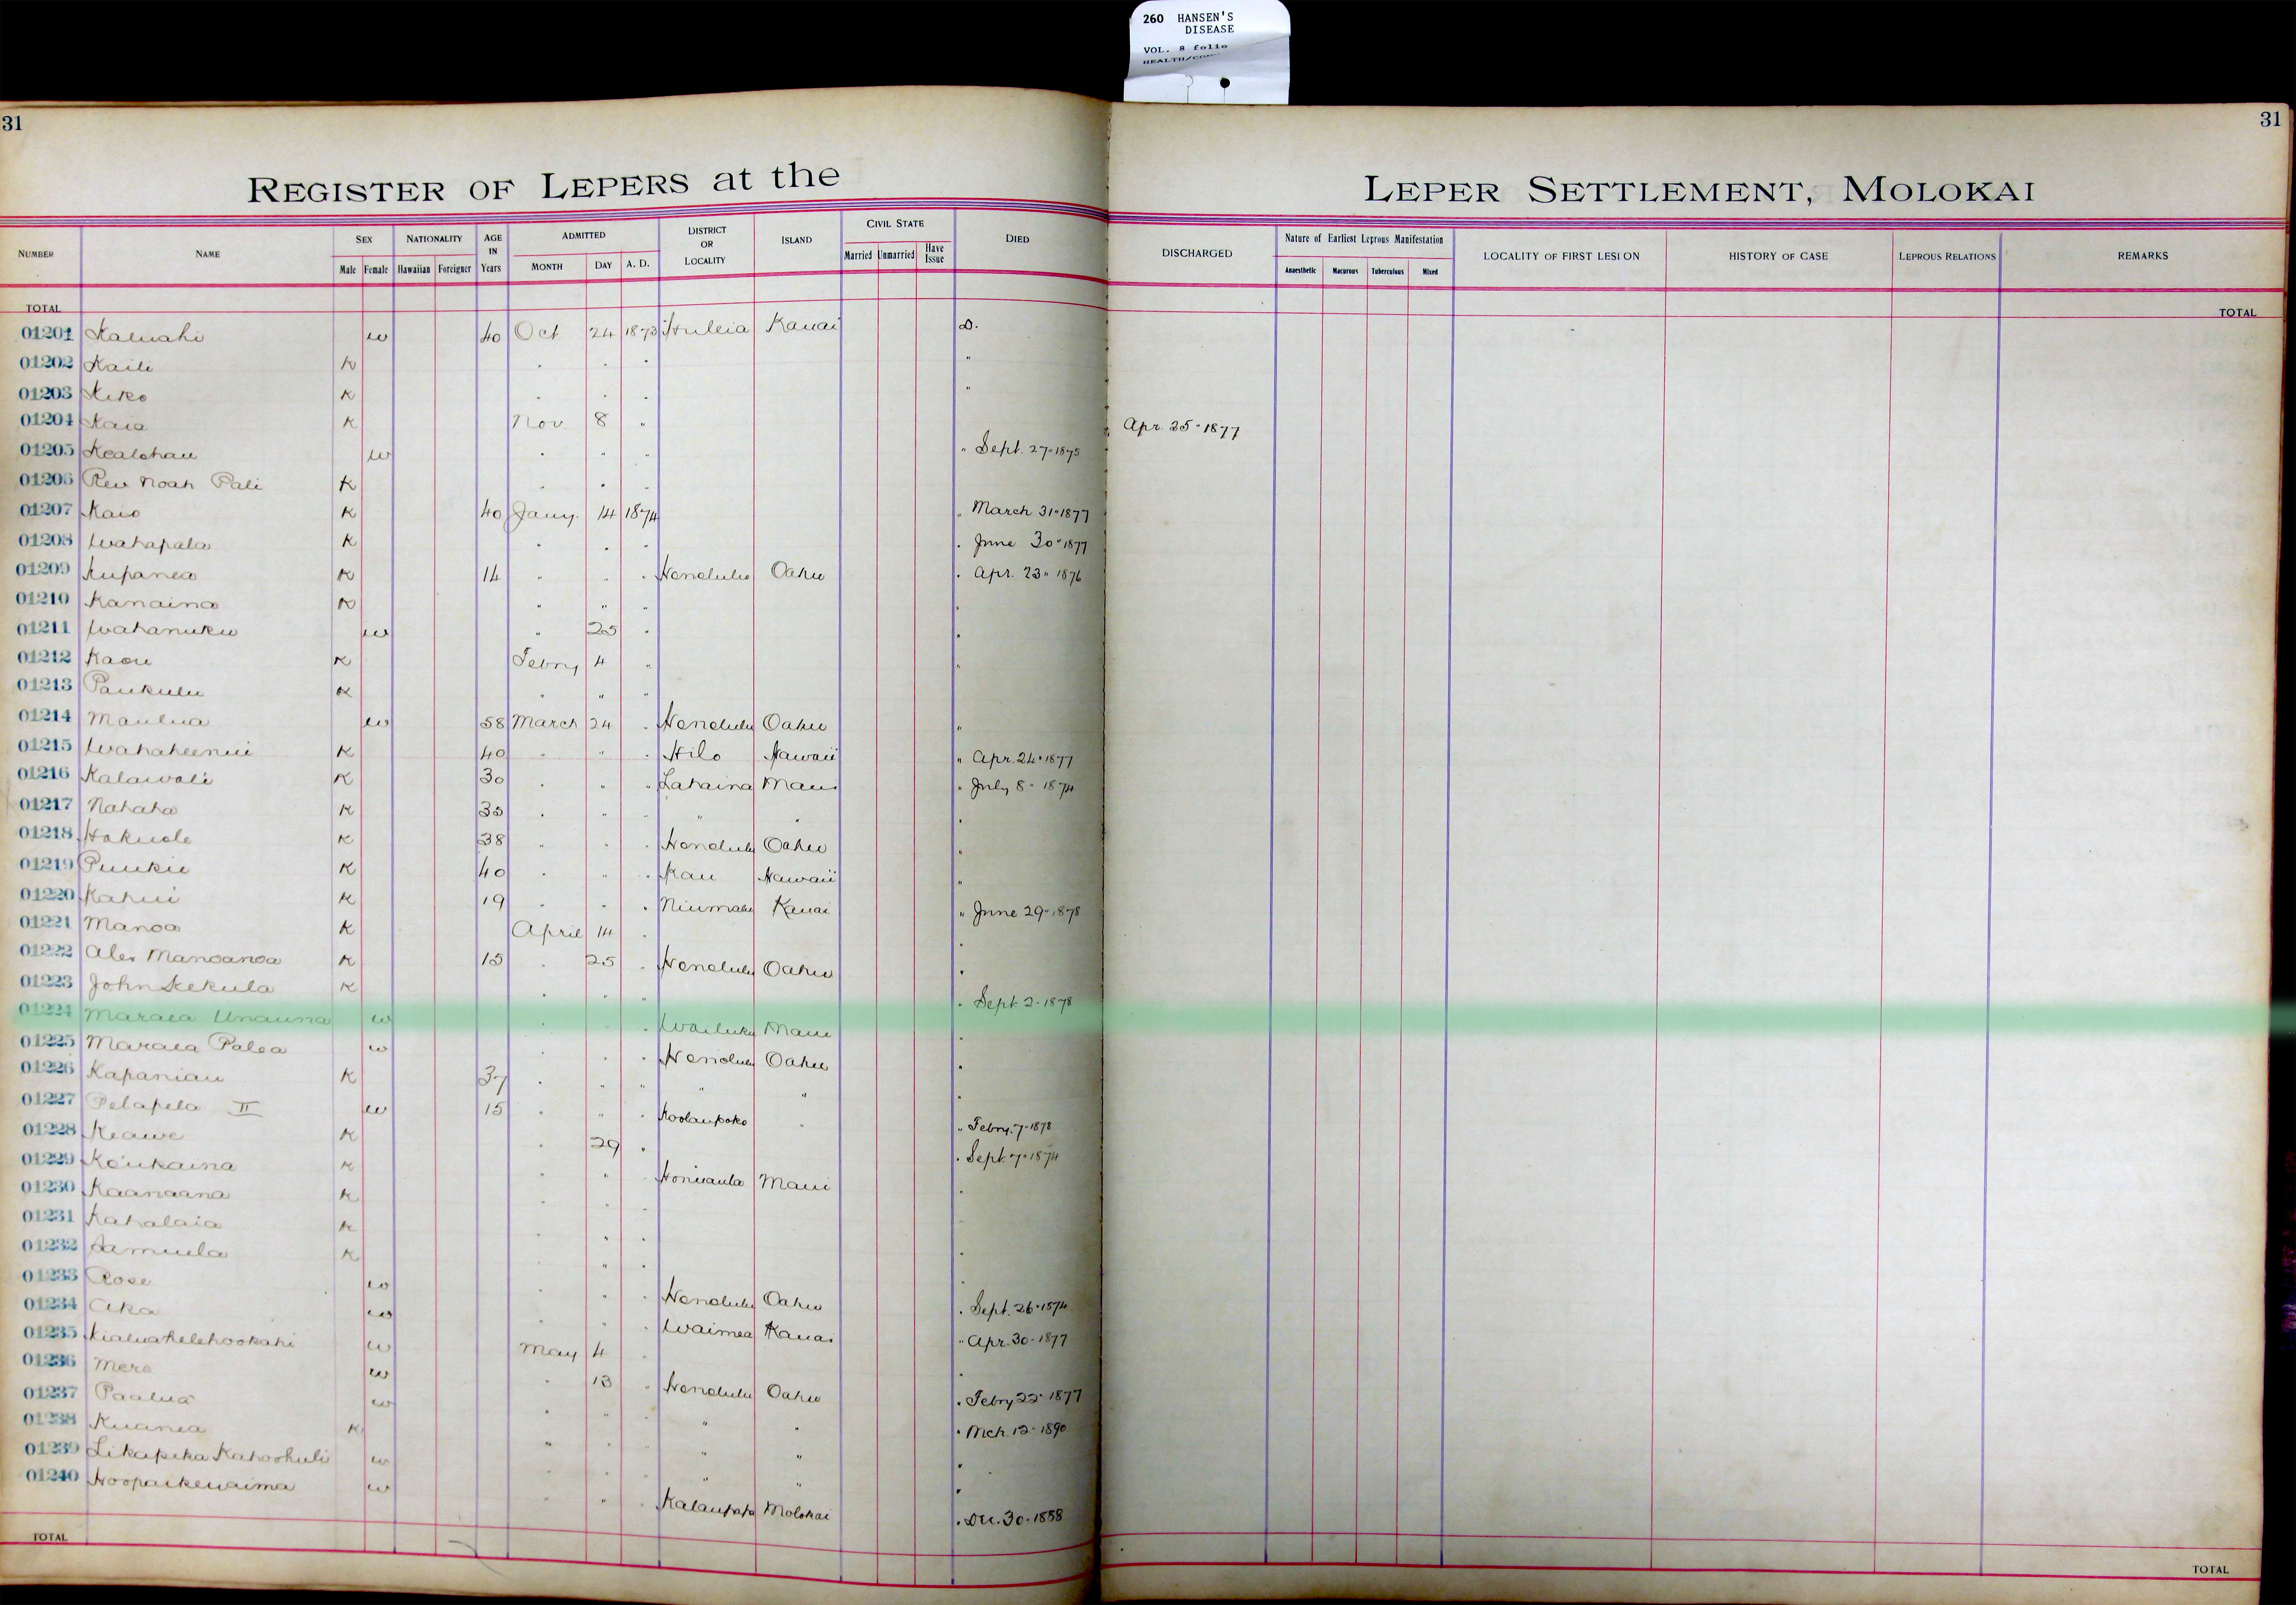 260 HANSEN'S
DISEASE
VOL. 8 folio
31
31
REGISTER OF LEPERS at the
LEPER SETTLEMENT, MOLOKAI
NUMBER NAME SEX Male Female NATIONALITY Hawaiian Foreigner AGE IN Years ADMITTED MONTH DAY A. D. DISTRICT OR LOCALITY ISLAND CIVIL STATE Married Unmarried Have Issue DIED
DISCHARGED Nature of Earliest Leprous Manifestation Anaesthetic Macurous Tuberculous Mixed LOCALITY OF FIRST LESION HISTORY OF CASE LEPROUS RELATIONS REMARKS
TOTAL TOTAL
01201 Kaluahi w 40 Oct 24 1873 Huleia Kauai D.
01202 Kaili K " " " "
01203 Kiko K " " " "
01204 Kaia K Nov 8 " Apr. 25" 1877
01205 Kealohau w " " " " Sept. 27" 1875
01206 Rev Noah Pali K " " "
01207 Kaio K 40 Jany. 14 1874 " March 31" 1877
01208 Wahapala K " " " " June 30" 1877
01209 Kupanea K 14 " " " Honolulu Oahu " Apr. 23" 1876
01210 Kanaina K " " " "
01211 Wahanuku w " 25 " "
01212 Kaou K Febry 4 " "
01213 Paukulu K " " "
01214 Maulua w 58 March 24 " Honolulu Oahu "
01215 Wahaheenui K 40 " " " Hilo Hawaii " Apr. 24" 1877
01216 Kalawali K 30 " " " Lahaina Maui " July 8" 1874
01217 Nahaha K 35 " " " " " "
01218 Hakuole K 38 " " " Honolulu Oahu "
01219 Puukii K 40 " " " Kau Hawaii "
01220 Kahui K 19 " " " Niumalu Kauai " June 29" 1878
01221 Manoa K April 14 " "
01222 Alex Manoanoa K 15 " 25 " Honolulu Oahu "
01223 John Kekula K " " " " Sept 2" 1878
01224 Maraea Unauna w " " " Wailuku Maui "
01225 Maraea Palea w " " " Honolulu Oahu "
01226 Kapaniau K 37 " " " " " "
01227 Pelapela II w 15 " " " Koolaupoko " " Febry. 7" 1878
01228 Keawe K " 29 " " Sept 7" 1874
01229 Koukaina K " " " Honuaula Maui "
01230 Kaanaana K " " "
01231 Kahalaia K " " " "
01232 Samuela K " " "
01233 Rose w " " " Honolulu Oahu " Sept. 26" 1874
01234 Aka w " " " Waimea Kauai " Apr. 30" 1877
01235 Kialuahelehookahi w May 4 " "
01236 Mere w " 13 " Honolulu Oahu " Febry 22" 1877
01237 Paalua w " " " " " " Mch 12" 1890
01238 Kuanea K " " " " " "
01239 Likapeka Kahoohuli w " " " " " "
01240 Hoopaikewaima w " " " Kalaupapa Molokai " Dec. 30" 1888
TOTAL TOTAL